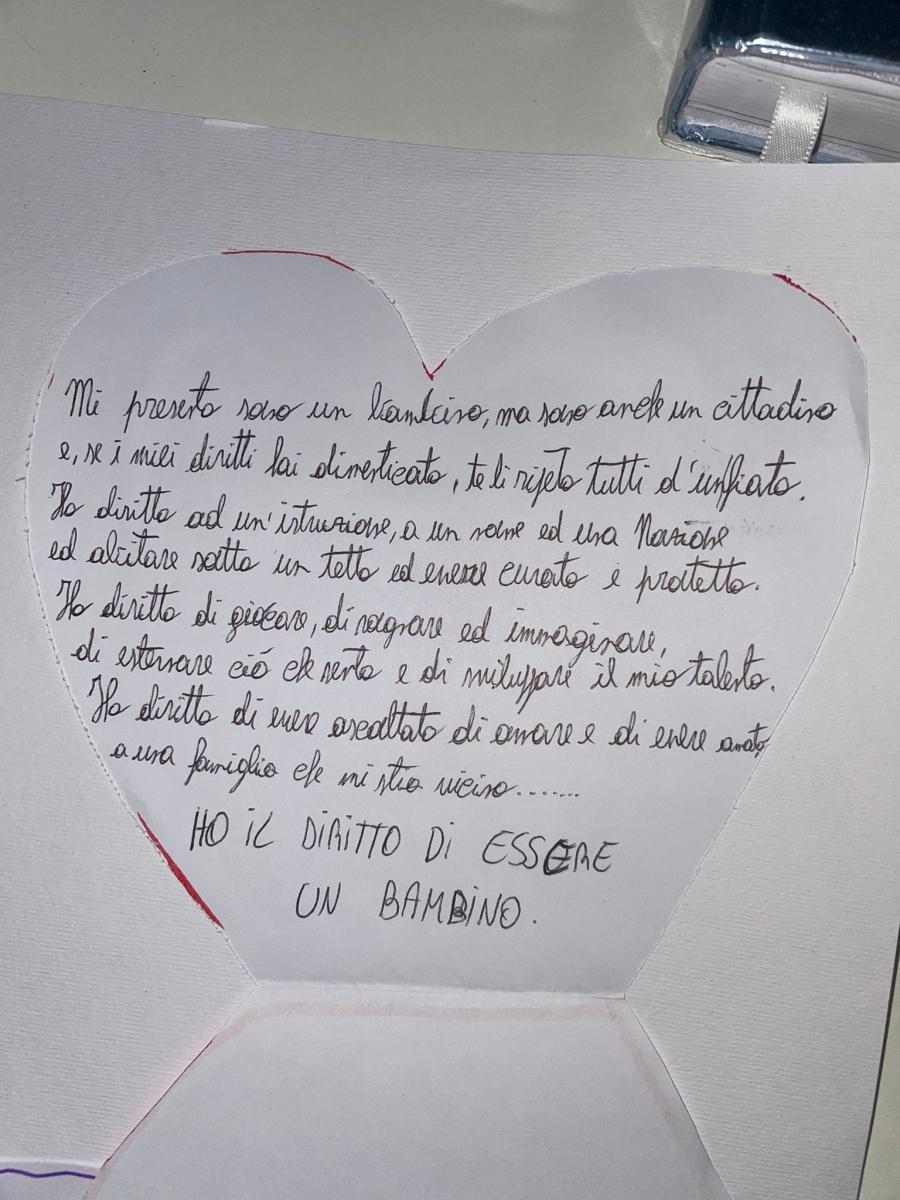 Mi presento sono un bambino, ma sono anche un cittadino
e, se i miei diritti hai dimenticato, te li ripeto tutti d'un fiato.
Ho diritto ad un'istruzione, a un nome ed una Nazione
ed abitare sotto un tetto ed essere curato e protetto.
Ho diritto di giocare, di sognare ed immaginare,
di esternare ció che sento e di sviluppare il mio talento.
Ho diritto di essere ascoltato di amare e di essere amato
a una famiglia che mi stia vicino.......
HO IL DIRITTO DI ESSERE
UN BAMBINO.